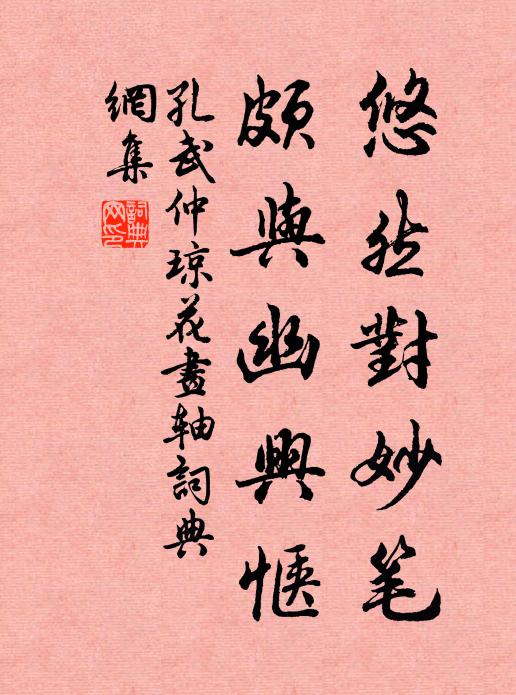 悠然對妙笔
頗與幽興惬
孔武仲琼花畫轴詞典
網集
詞典
网印